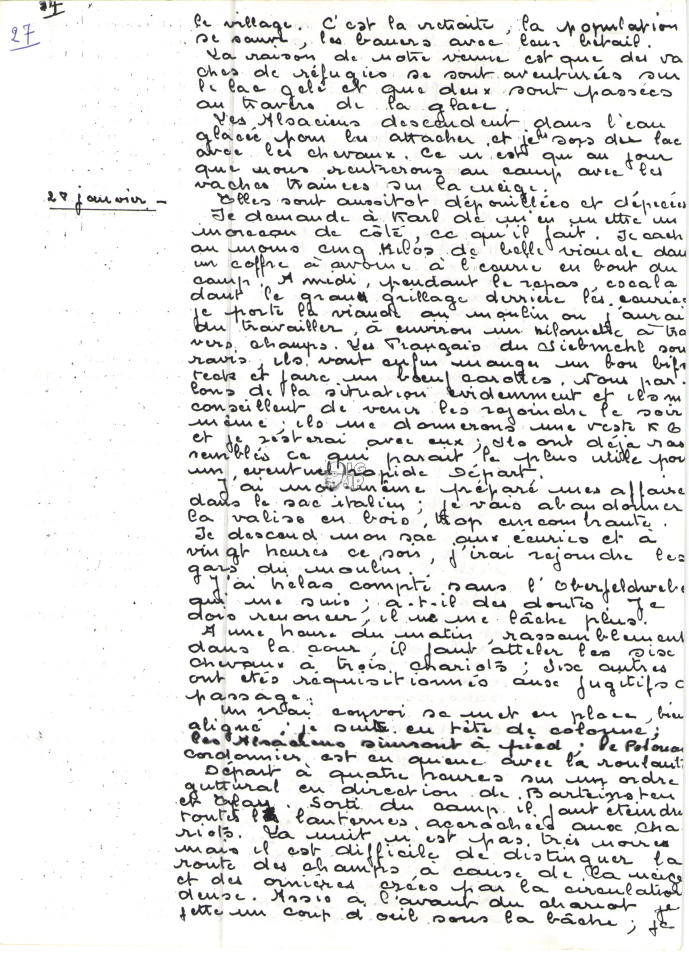 27
le village. C'est la retraite, la population
se sauve, les bauers avec leur bétail.
La raison de notre venue est que des va
ches de réfugiés se sont aventurées sur
le lac gelé et que deux sont passées
au travers de la glace.
Les Alsaciens descendent dans l'eau
glacée pour les attacher et je sors du lac
avec les chevaux. Ce n'est qu'au jour
que nous rentrerons au camp avec les
vaches trainées sur la neige.
28 janvier. - Elles sont aussitot dépouillées et dépecées
Je demande à Karl de m'en mettre un
morceau de côté, ce qu'il fait. Je cach
au moins cinq kilos de belle viande dan
un coffre à avoine à l'écurie en bout du
camp. A midi, pendant le repas, escala
dant le grand grillage derrière les écuries
je porte la viande au moulin ou j'aurai
du travailler, à environ un kilomètre à tra
vers champs. Les Français du Siebmehl son
ravis, ils vont enfin manger un bon bif
teck et faire un boeuf carottes. Nous par
lons de la situation évidemment et ils m
conseillent de venir les rejoindre le soir
même ; ils me donnerons une veste K G
et je resterai avec eux ; ils ont déjà ras
semblés ce qui parait le plus utile pou
un eventuel rapide départ.
J'ai moi même préparé mes affaire
dans le sac italien ; je vais abandonner
la valise en bois, trop encombrante.
Je descend mon sac aux écuries et à
vingt heures ce soir, j'irai rejoindre les
gars du moulin.
J'ai hélas compté sans l'Oberfeldwebe
qui me suit ; a-t-il des doutes. Je
dois renoncer, il ne me lâche plus.
A une heure du matin, rassemblement
dans la cour, il faut atteler les six
chevaux à trois chariots ; six autres
ont étés réquisitionnés aux fugitifs d
passage.
Un vrai convoi se met en place, bien
aligné ; je suis en tête de colonne ;
les Alsaciens suivront à pied ; le Polonai
cordonnier est en queue avec la roulant
Départ à quatre heures sur un ordre
guttural en direction de Bartenstein
et Eylau. Sorti du camp il faut éteindre
toutes les lanternes accrochées aux cha
riots. La nuit n'est pas très noires
mais il est difficile de distinguer la
route des champs à cause de la neige
et des ornières crées par la circulation
dense. Assis à l'avant du chariot je
jette un coup d'oeil sous la bâche ; je